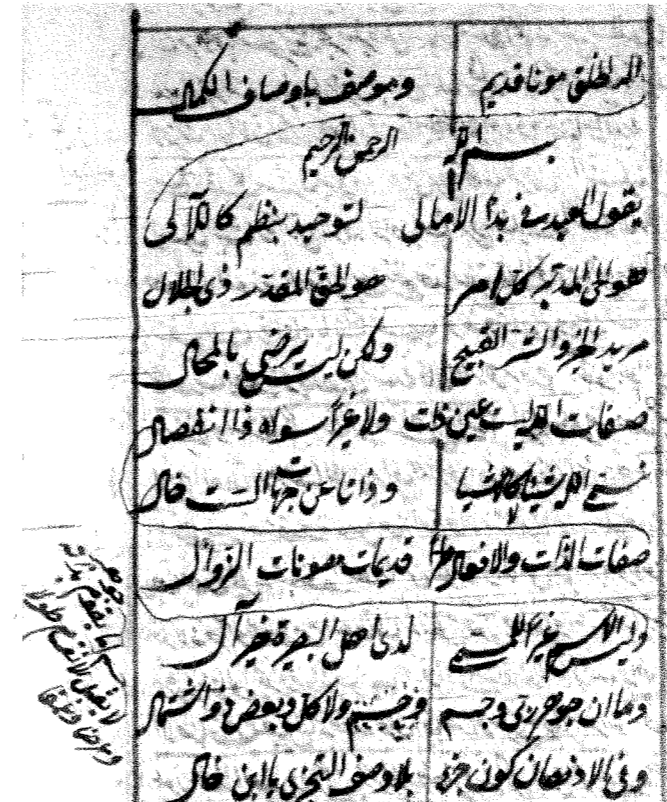 اله الخلق مولانا قديم وموصوف باوصاف الكمال
بسم الله الرحمن الرحيم
يقول العبد في بدأ الامالى لتوحيد بنظم كاللآلى
هو الحى المدبر كل امر هو الحق المقدر ذى الجلال
مريد الخير والشر القبيح ولكن ليس يرضى بالمحال
صفات الله ليست عين ذات ولا غيرا سواه ذا انفصال
نسمى الله شيئا لا كالاشيا وذاتا عن جهات الست خال
صفات الذات والافعال طرا قديمات مصونات الزوال
وليس الاسم غيرا للمسمى لدى اهل البصيرة خير آل
وما ان جوهر ربى وجسم ولا كل وبعض ذو اشتمال
وفى الاذهان كون جزء بلا وصف التجزى يا ابن خال